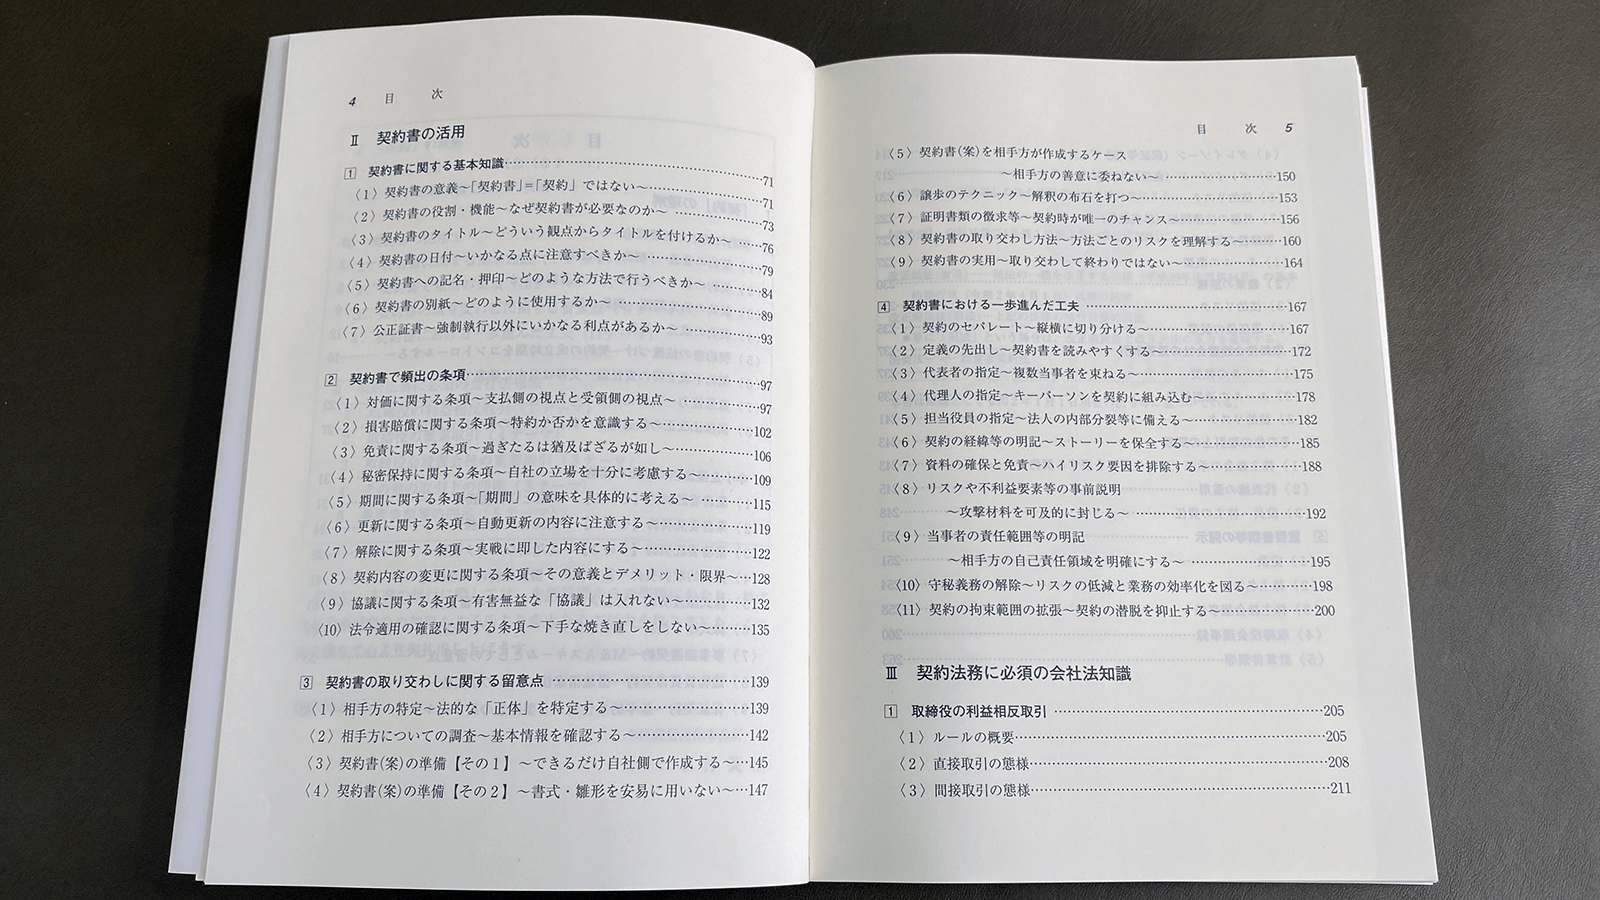 4 目 次
Ⅱ 契約書の活用
1 契約書に関する基本知識……71
〈1〉契約書の意義～「契約書」=「契約」ではない～……71
〈2〉契約書の役割・機能～なぜ契約書が必要なのか～……73
〈3〉契約書のタイトル～どういう観点からタイトルを付けるか～……76
〈4〉契約書の日付～いかなる点に注意すべきか～……79
〈5〉契約書への記名・押印～どのような方法で行うべきか～……84
〈6〉契約書の別紙～どのように使用するか～……89
〈7〉公正証書～強制執行以外にいかなる利点があるか～……93
2 契約書で頻出の条項……97
〈1〉対価に関する条項～支払側の視点と受領側の視点～……97
〈2〉損害賠償に関する条項～特約か否かを意識する～……102
〈3〉免責に関する条項～過ぎたるは猶及ばざるが如し～……106
〈4〉秘密保持に関する条項～自社の立場を十分に考慮する～……109
〈5〉期間に関する条項～「期間」の意味を具体的に考える～……115
〈6〉更新に関する条項～自動更新の内容に注意する～……119
〈7〉解除に関する条項～実戦に即した内容にする～……122
〈8〉契約内容の変更に関する条項～その意義とデメリット・限界～…128
〈9〉協議に関する条項～有害無益な「協議」は入れない～……132
〈10〉法令適用の確認に関する条項～下手な焼き直しをしない～……135
3 契約書の取り交わしに関する留意点……139
〈1〉相手方の特定～法的な「正体」を特定する～……139
〈2〉相手方についての調査～基本情報を確認する～……142
〈3〉契約書(案)の準備【その1】～できるだけ自社側で作成する～…145
〈4〉契約書(案)の準備【その2】～書式・雛形を安易に用いない～…147
目 次 5
〈5〉契約書(案)を相手方が作成するケース
～相手方の善意に委ねない～……150
〈6〉譲歩のテクニック～解釈の布石を打つ～……153
〈7〉証明書類の徴求等～契約時が唯一のチャンス～……156
〈8〉契約書の取り交わし方法～方法ごとのリスクを理解する～……160
〈9〉契約書の実用～取り交わして終わりではない～……164
4 契約書における一歩進んだ工夫……167
〈1〉契約のセパレート～縦横に切り分ける～……167
〈2〉定義の先出し～契約書を読みやすくする～……172
〈3〉代表者の指定～複数当事者を束ねる～……175
〈4〉代理人の指定～キーパーソンを契約に組み込む～……178
〈5〉担当役員の指定～法人の内部分裂等に備える～……182
〈6〉契約の経緯等の明記～ストーリーを保全する～……185
〈7〉資料の確保と免責～ハイリスク要因を排除する～……188
〈8〉リスクや不利益要素等の事前説明
～攻撃材料を可及的に封じる～……192
〈9〉当事者の責任範囲等の明記
～相手方の自己責任領域を明確にする～……195
〈10〉守秘義務の解除～リスクの低減と業務の効率化を図る～……198
〈11〉契約の拘束範囲の拡張～契約の潜脱を抑止する～……200
Ⅲ 契約法務に必須の会社法知識
1 取締役の利益相反取引……205
〈1〉ルールの概要……205
〈2〉直接取引の態様……208
〈3〉間接取引の態様……211